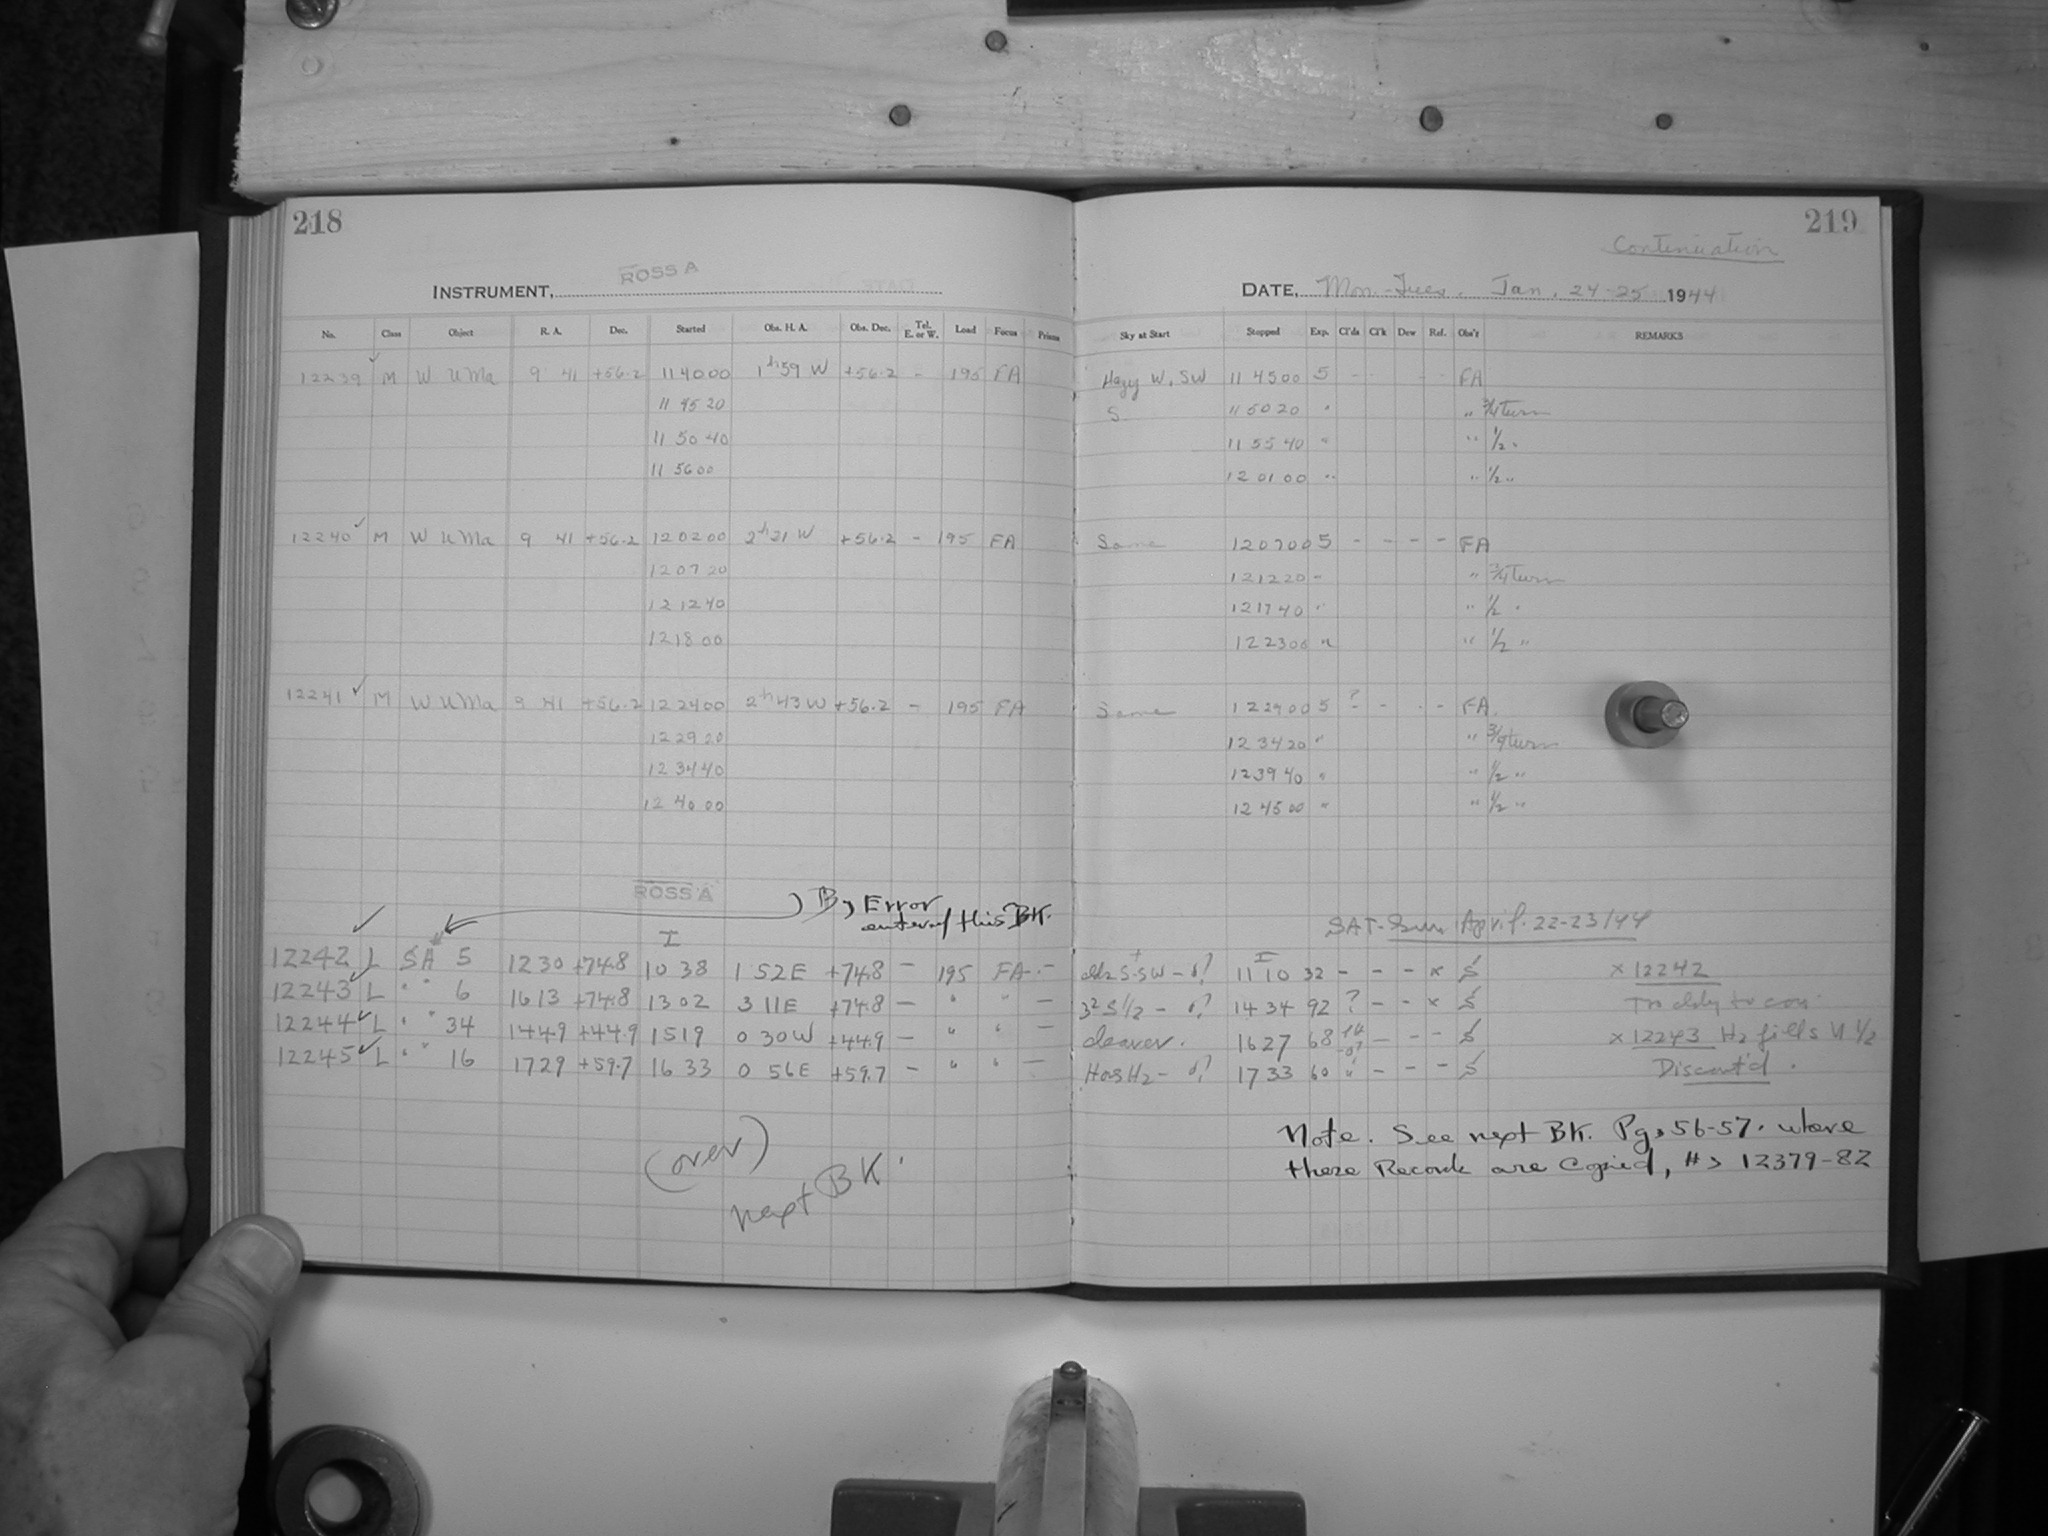 218
ROSS A
INSTRUMENT,
No. Class Object R. A. Dec. Started Obs. H. A. Obs. Dec. Tel. E. or W. Load Focus Prisms
12239 ✓ M W UMa 9 41 +56.2 11 40 00 1h59 W +56.2 - 195 FA
11 45 20
11 50 40
11 56 00
12240 ✓ M W UMa 9 41 +56.2 12 02 00 2h21 W +56.2 - 195 FA
12 07 20
12 12 40
12 18 00
12241 ✓ M W UMa 9 41 +56.2 12 24 00 2h43 W +56.2 - 195 FA
12 29 20
12 34 40
12 40 00
ROSS A
By Error
entered this BK.
I
12242 ✓ L SA 5 12 30 +74.8 10 38 1 52E +74.8 - 195 FA -
12243 ✓ L " " 6 16 13 +74.8 13 02 3 11E +74.8 - " " -
12244 ✓ L " " 34 14 49 +44.9 15 19 0 30W +44.9 - " " -
12245 ✓ L " " 16 17 29 +59.7 16 33 0 56E +59.7 - " " -
(over)
next BK.
219
Continuation
DATE, Mon.-Tues. Jan. 24-25 1944
Sky at Start Stopped Exp. Cl'ds Cl'k Dew Ref. Obs'r REMARKS
Hazy W, SW 11 45 00 5 - - - - FA
S 11 50 20 " " 3/4 turn
11 55 40 " " 1/2 "
12 01 00 " " 1/2 "
Same 12 07 00 5 - - - - FA
12 12 20 " " 3/4 turn
12 17 40 " " 1/2 "
12 23 00 " " 1/2 "
Same 12 29 00 5 ? - - - - FA
12 34 20 " " 3/4 turn
12 39 40 " " 1/2 "
12 45 00 " " 1/2 "
SAT-Sun April. 22-23/44
I
S-SW - 11 10 32 - - - x × 12242
- 14 34 92 ? - - x Too cldy to con.
clearer. 16 27 68 - - - × 12243 Hz fills N 1/2
Has Hz - 17 33 60 " - - - Discont'd.
Note. See next BK. Pgs 56-57. where
these Records are Copied, #s 12379-82